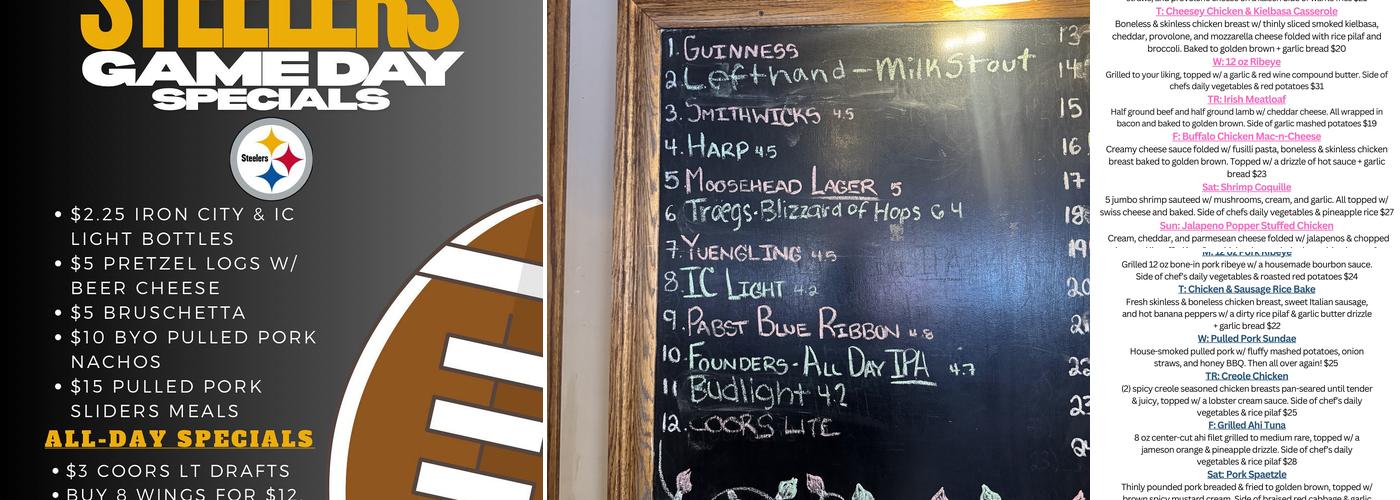 STEELERS
GAME DAY
SPECIALS
Steelers
• $2.25 IRON CITY & IC
LIGHT BOTTLES
• $5 PRETZEL LOGS W/
BEER CHEESE
• $5 BRUSCHETTA
• $10 BYO PULLED PORK
NACHOS
• $15 PULLED PORK
SLIDERS MEALS
ALL-DAY SPECIALS
• $3 COORS LT DRAFTS
• BUY 8 WINGS FOR $12,
1. GUINNESS
2. Lefthand - Milk Stout
3. SMITHWICKS 4.5
4. HARP 4.5
5 MOOSEHEAD LAGER 5
6 Troegs-Blizzard of Hops 6.4
7. YUENGLING 4.5
8. IC LIGHT 4.2
9. PABST BLUE RIBBON 4.8
10. FOUNDERS-ALL DAY IPA 4.7
11 Budlight 4.2
12. COORS LITE
13
14
15
16
17
18
19
20
21
22
23
24
T: Cheesey Chicken & Kielbasa Casserole
Boneless & skinless chicken breast w/ thinly sliced smoked kielbasa,
cheddar, provolone, and mozzarella cheese folded with rice pilaf and
broccoli. Baked to golden brown + garlic bread $20
W: 12 oz Ribeye
Grilled to your liking, topped w/ a garlic & red wine compound butter. Side of
chefs daily vegetables & red potatoes $31
TR: Irish Meatloaf
Half ground beef and half ground lamb w/ cheddar cheese. All wrapped in
bacon and baked to golden brown. Side of garlic mashed potatoes $19
F: Buffalo Chicken Mac-n-Cheese
Creamy cheese sauce folded w/ fusilli pasta, boneless & skinless chicken
breast baked to golden brown. Topped w/ a drizzle of hot sauce + garlic
bread $23
Sat: Shrimp Coquille
5 jumbo shrimp sauteed w/ mushrooms, cream, and garlic. All topped w/
swiss cheese and baked. Side of chefs daily vegetables & pineapple rice $27
Sun: Jalapeno Popper Stuffed Chicken
Cream, cheddar, and parmesean cheese folded w/ jalapenos & chopped
M: 12 oz Pork Ribeye
Grilled 12 oz bone-in pork ribeye w/ a housemade bourbon sauce.
Side of chef's daily vegetables & roasted red potatoes $24
T: Chicken & Sausage Rice Bake
Fresh skinless & boneless chicken breast, sweet Italian sausage,
and hot banana peppers w/ a dirty rice pilaf & garlic butter drizzle
+ garlic bread $22
W: Pulled Pork Sundae
House-smoked pulled pork w/ fluffy mashed potatoes, onion
straws, and honey BBQ. Then all over again! $25
TR: Creole Chicken
(2) spicy creole seasoned chicken breasts pan-seared until tender
& juicy, topped w/ a lobster cream sauce. Side of chef's daily
vegetables & rice pilaf $25
F: Grilled Ahi Tuna
8 oz center-cut ahi filet grilled to medium rare, topped w/ a
jameson orange & pineapple drizzle. Side of chef's daily
vegetables & rice pilaf $28
Sat: Pork Spaetzle
Thinly pounded pork breaded & fried to golden brown, topped w/
brown spicy mustard cream. Side of braised red cabbage & garlic